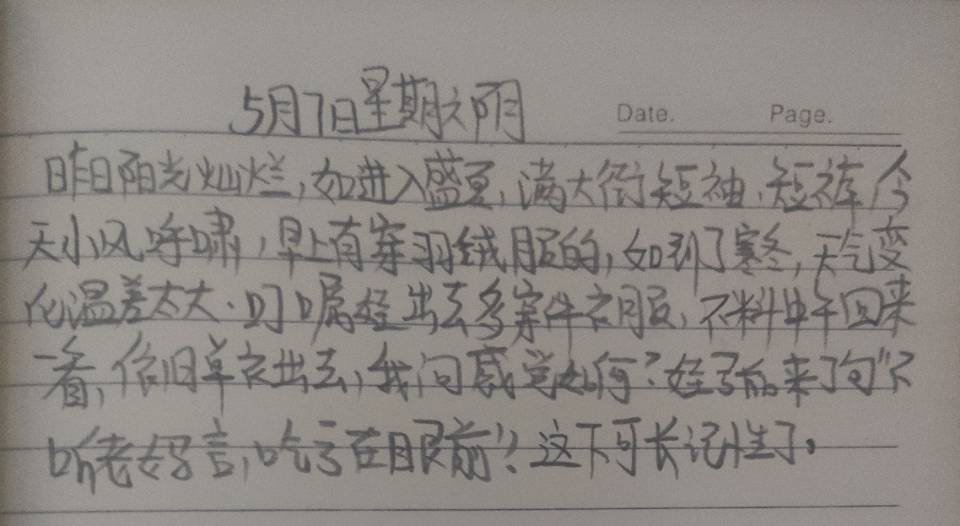 5月7日星期六阴
Date.
Page.
昨日阳光灿烂,如进入盛夏,满大街短袖、短裤今
天小风呼啸,早上有穿羽绒服的,如到了寒冬,天气变
化温差太大.叮嘱娃出去多穿件衣服,不料中午回来
一看,依旧单衣出去,我问感觉如何?娃子而来了句"不
听老妈言,吃亏在眼前"!这下可长记性了。